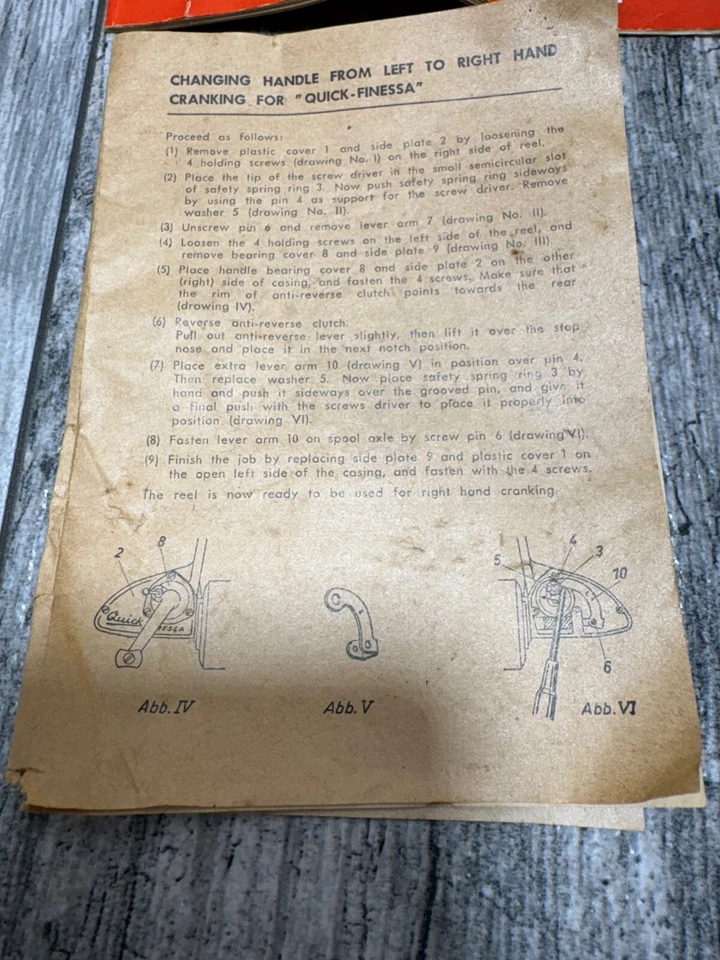 CHANGING HANDLE FROM LEFT TO RIGHT HAND
CRANKING FOR "QUICK-FINESSA"
Proceed as follows:
(1) Remove plastic cover 1 and side plate 2 by loosening the
4 holding screws (drawing No. I) on the right side of reel.
(2) Place the tip of the screw driver in the small semicircular slot
of safety spring ring 3. Now push safety spring ring sideways
by using the pin 4 as support for the screw driver. Remove
washer 5 (drawing No. II).
(3) Unscrew pin 6 and remove lever arm 7 (drawing No. II).
(4) Loosen the 4 holding screws on the left side of the reel, and
remove bearing cover 8 and side plate 9 (drawing No. III)
(5) Place handle bearing cover 8 and side plate 2 on the other
(right) side of casing, and fasten the 4 screws. Make sure that
the rim of anti-reverse clutch points towards the rear
(drawing IV).
(6) Reverse anti-reverse clutch.
Pull out anti-reverse lever slightly, then lift it over the stop
nose and place it in the next notch position.
(7) Place extra lever arm 10 (drawing V) in position over pin 4.
Then replace washer 5. Now place safety spring ring 3 by
hand and push it sideways over the grooved pin, and give it
a final push with the screws driver to place it properly into
position (drawing VI).
(8) Fasten lever arm 10 on spool axle by screw pin 6 (drawing VI).
(9) Finish the job by replacing side plate 9 and plastic cover 1 on
the open left side of the casing, and fasten with the 4 screws.
The reel is now ready to be used for right hand cranking.
2 8
Quick
Abb. IV
Abb. V
5 4 3 10 6
Abb. VI